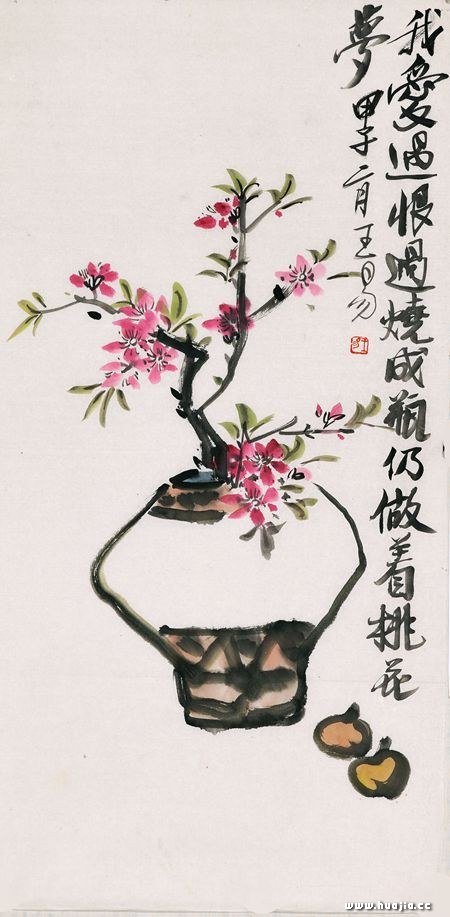 我愛過恨過燒成瓶仍做着桃花
夢 甲子二月王易
www.huajia.cc